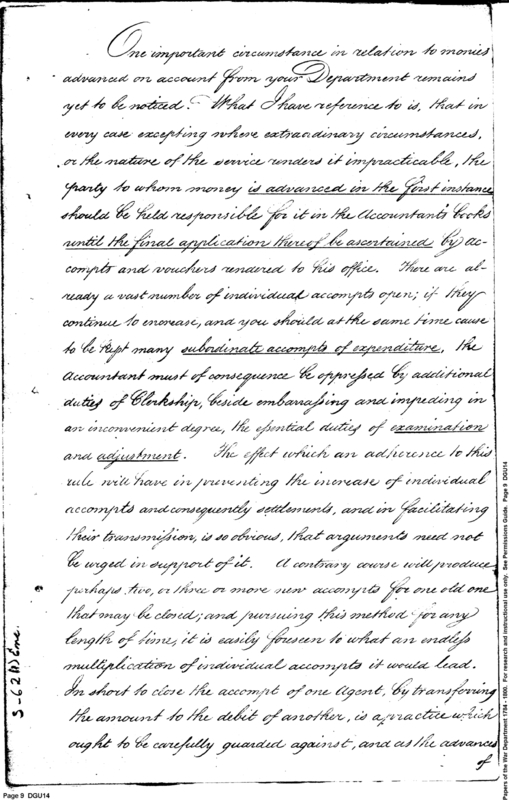 One important circumstance in relation to monies
advanced on account from your Department remains
yet to be noticed. What I have reference to is, that in
every case excepting where extraordinary circumstances,
or the nature of the service renders it impracticable, the
party to whom money is advanced in the first instance
should be held responsible for it in the Accountants books
until the final application thereof be ascertained by ac-
compts and vouchers rendered to his office. There are al-
ready a vast number of individual accompts open; if they
continue to encrease, and you should at the same time cause
to be kept many subordinate accompts of expenditure, the
Accountant must of consequence be oppressed by additional
duties of Clerkship, beside embarrassing and impeding in
an inconvenient degree, the essential duties of examination
and adjustment. The effect which an adherence to this
rule will have in preventing the increase of individual
accompts and consequently settlements, and in facilitating
their transmission, is so obvious, that arguments need not
be urged in support of it. A contrary course will produce
perhaps, two, or three or more new accompts for one old one
that may be closed; and pursuing this method for any
length of time, it is easily foreseen to what an endless
multiplication of individual accompts it would lead.
In short to close the accompt of one Agent, by transferring
the amount to the debit of another, is a practice which
ought to be carefully guarded against, and as the advances
of
Page 9 DGU14
Papers of the War Department 1784 - 1800. For research and instructional use only. See Permissions Guide. Page 9 DGU14